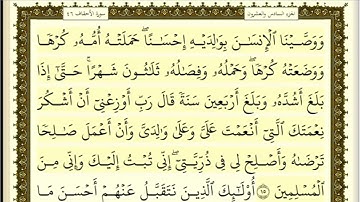 الجزء السادس والعشرون سورة الأحقاف ٤٦
وَوَصَّيْنَا ٱلْإِنسَٰنَ بِوَٰلِدَيْهِ إِحْسَٰنًا ۖ حَمَلَتْهُ أُمُّهُۥ كُرْهًا
وَوَضَعَتْهُ كُرْهًا ۖ وَحَمْلُهُۥ وَفِصَٰلُهُۥ ثَلَٰثُونَ شَهْرًا ۚ حَتَّىٰٓ إِذَا
بَلَغَ أَشُدَّهُۥ وَبَلَغَ أَرْبَعِينَ سَنَةً قَالَ رَبِّ أَوْزِعْنِىٓ أَنْ أَشْكُرَ
نِعْمَتَكَ ٱلَّتِىٓ أَنْعَمْتَ عَلَىَّ وَعَلَىٰ وَٰلِدَىَّ وَأَنْ أَعْمَلَ صَٰلِحًا
تَرْضَىٰهُ وَأَصْلِحْ لِى فِى ذُرِّيَّتِىٓ ۖ إِنِّى تُبْتُ إِلَيْكَ وَإِنِّى مِنَ
ٱلْمُسْلِمِينَ ۝١٥ أُو۟لَٰٓئِكَ ٱلَّذِينَ نَتَقَبَّلُ عَنْهُمْ أَحْسَنَ مَا